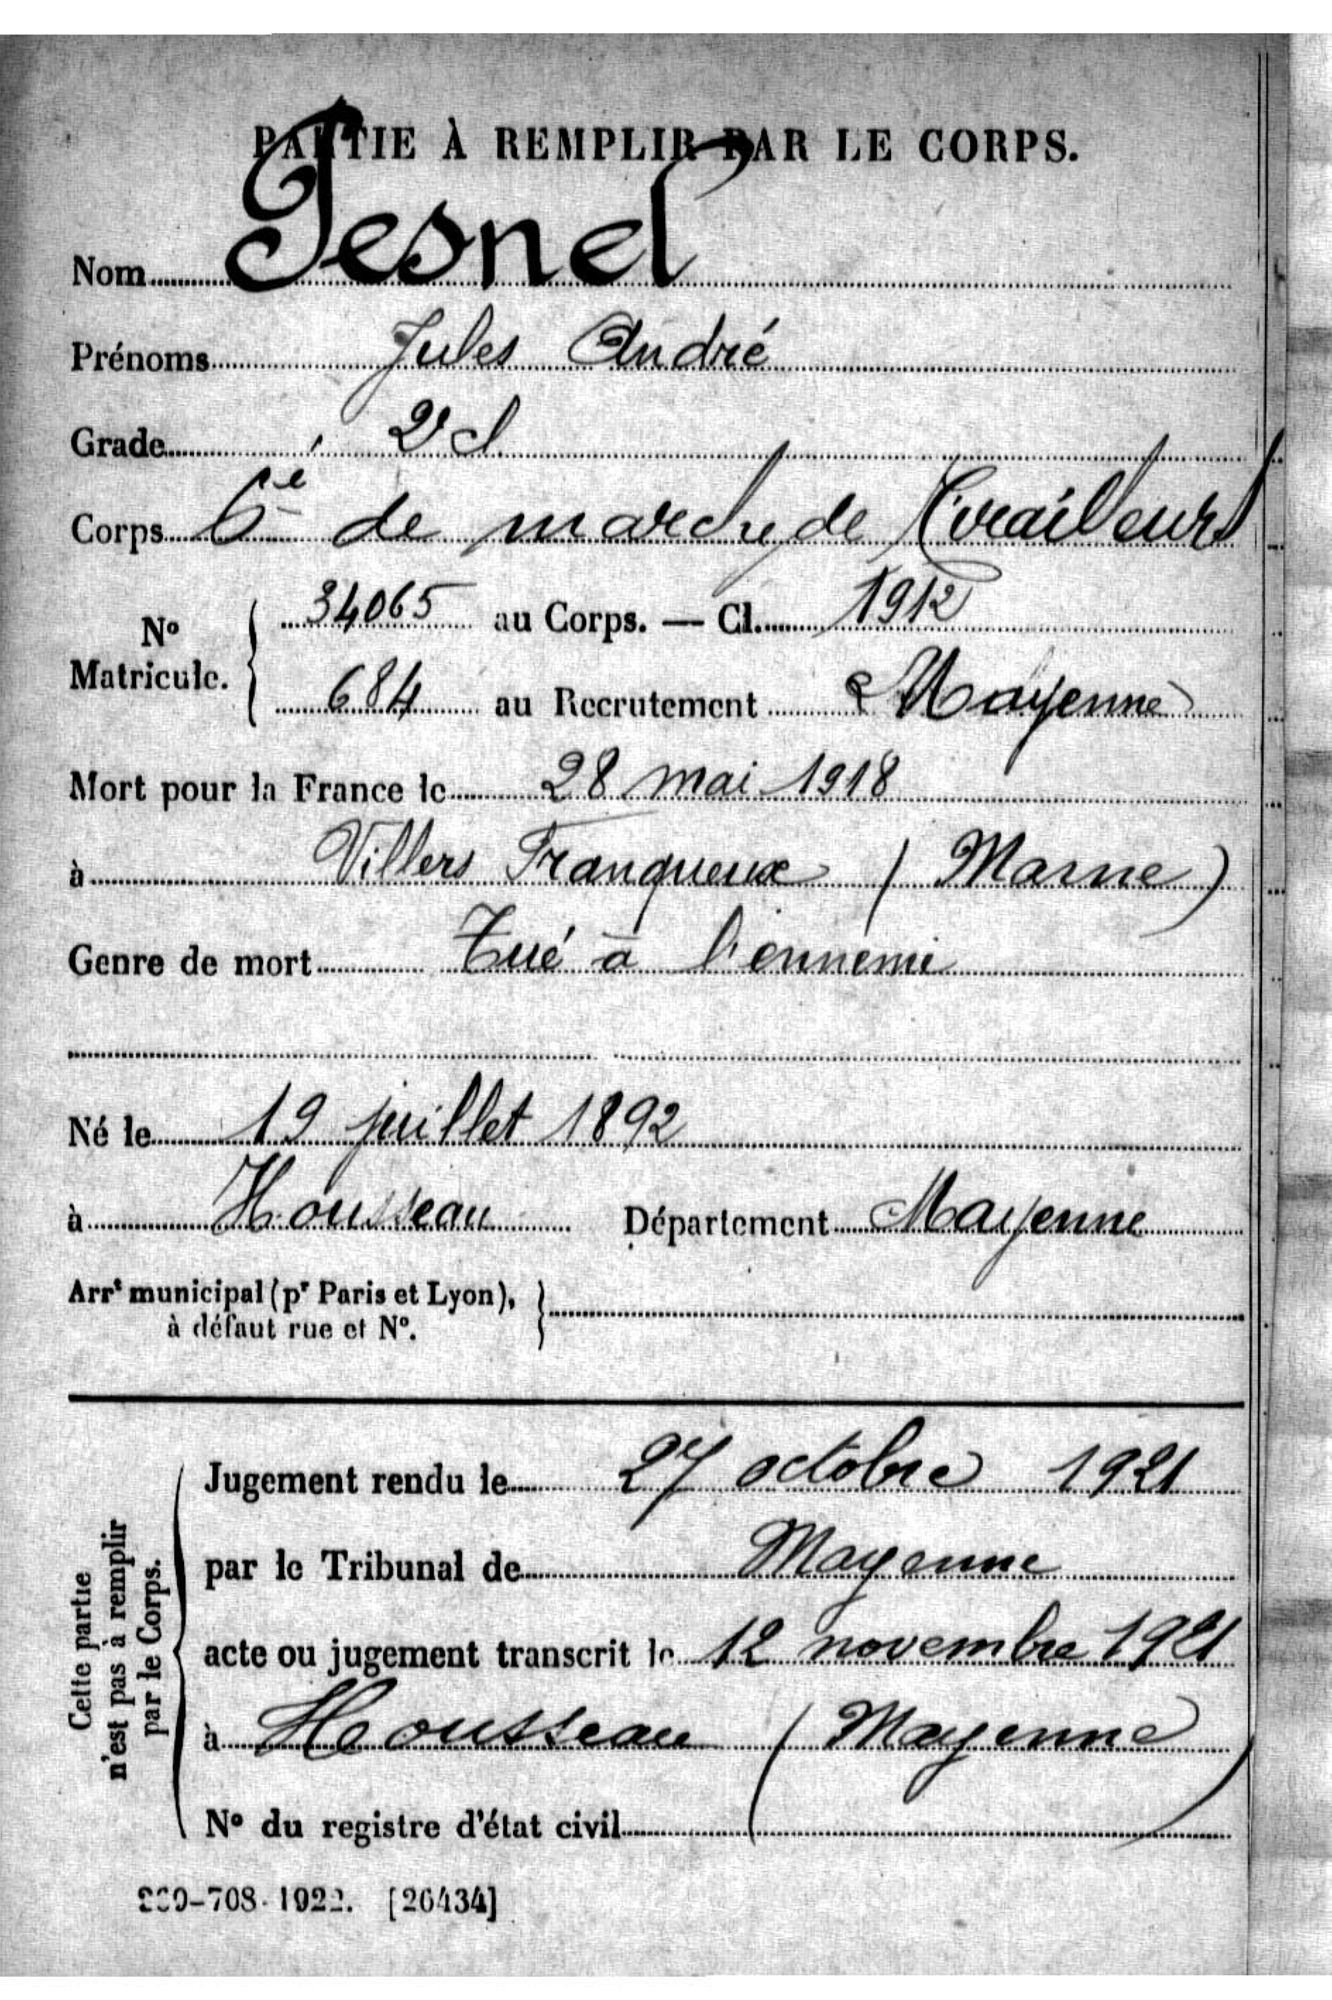 PARTIE À REMPLIR PAR LE CORPS.
Nom Pesnel
Prénoms Jules André
Grade 2e cl.
Corps 6e de marche de Tirailleurs
No Matricule. 34065 au Corps. — Cl. 1912
684 au Recrutement Mayenne
Mort pour la France le 28 mai 1918
à Villers Franqueux (Marne)
Genre de mort Tué à l'ennemi
Né le 19 juillet 1892
à Housseau Département Mayenne
Arrt municipal (pr Paris et Lyon),
à défaut rue et No.
Cette partie
n'est pas à remplir
par le Corps.
Jugement rendu le 27 octobre 1921
par le Tribunal de Mayenne
acte ou jugement transcrit le 12 novembre 1921
à Housseau (Mayenne)
No du registre d'état civil
-708-1922. [26434]